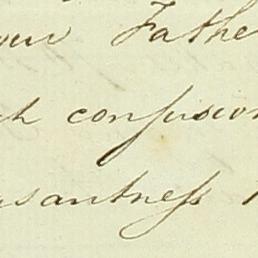 Fathe
ch confusion
asantneſs